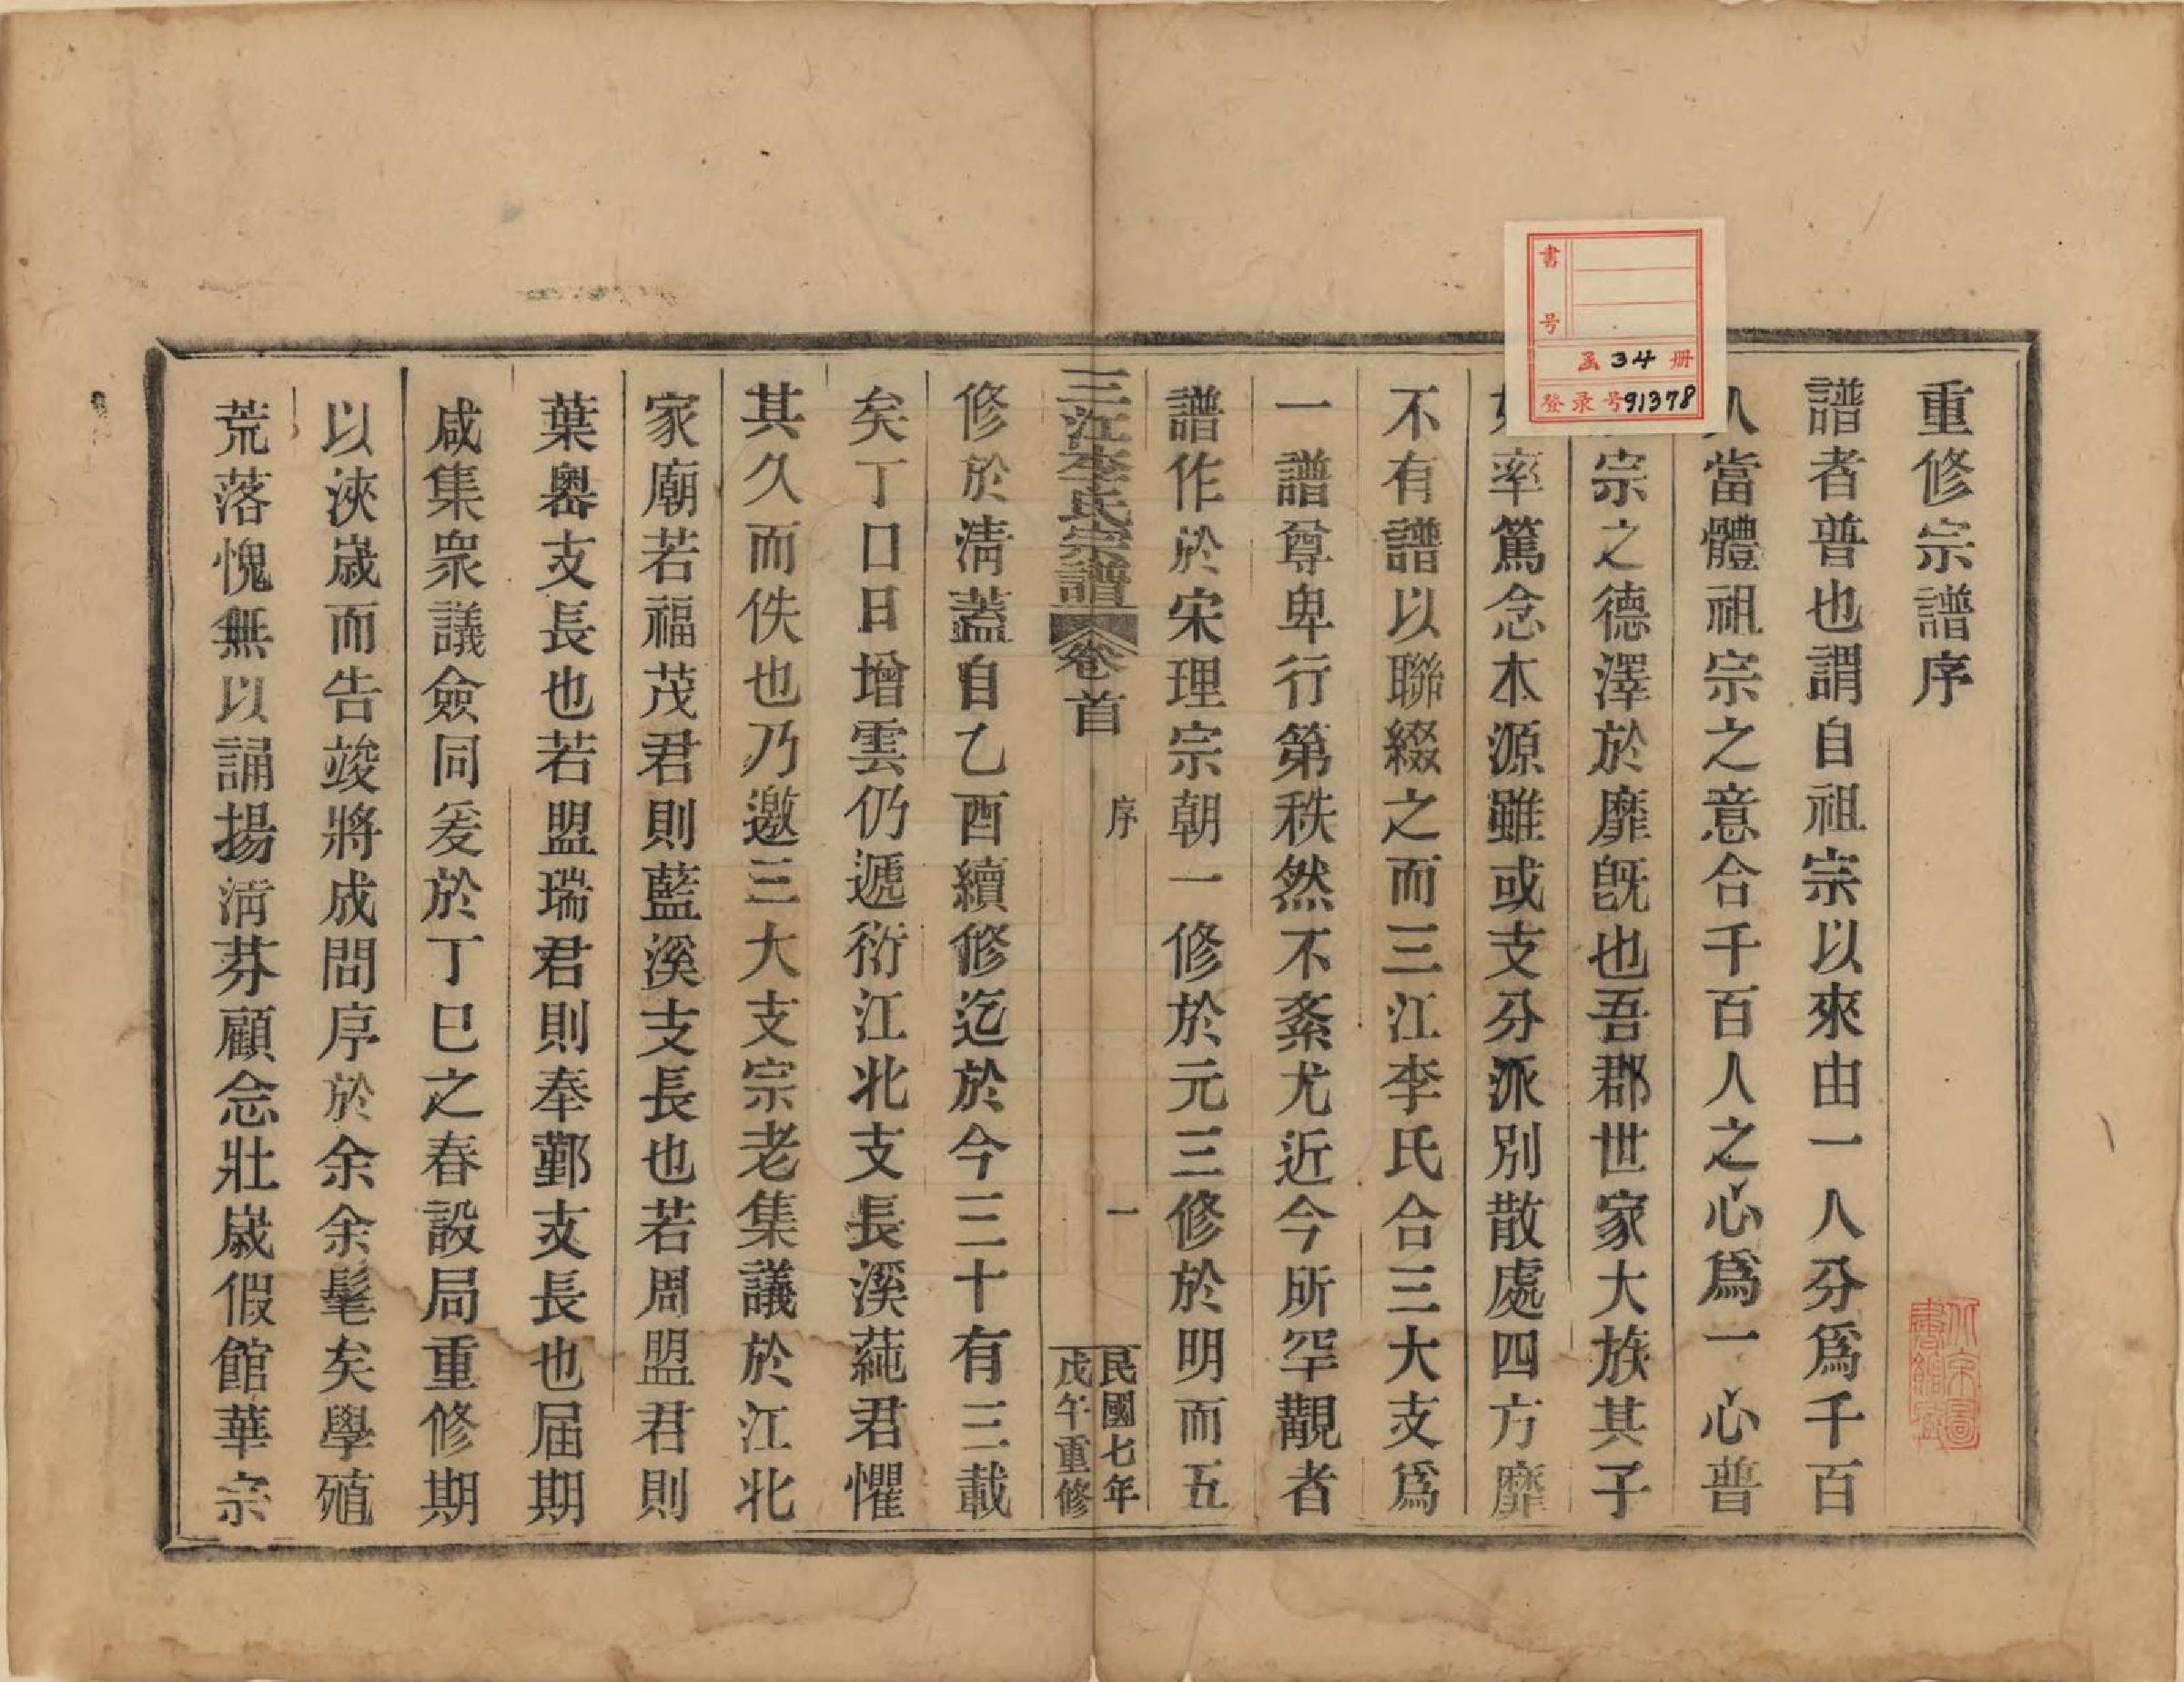 重修宗譜序
譜者普也謂自祖宗以來由一人分爲千百
人當體祖宗之意合千百人之心爲一心普
宗之德澤於靡旣也吾郡世家大族其子
率篤念木源雖或支分派別散處四方靡
不有譜以聯綴之而三江李氏合三大支爲
一譜尊卑行第秩然不紊尤近今所罕觀者
譜作於宋理宗朝一修於元三修於明而五
三江李氏宗譜 卷首 序 一 民國七年戊午重修
修於淸蓋自乙酉續修迄於今三十有三載
矣丁口日增雲仍遞衍江北支長溪蒓君懼
其久而佚也乃邀三大支宗老集議於江北
家廟若福茂君則藍溪支長也若周盟君則
葉嶴支長也若盟瑞君則奉鄞支長也届期
咸集衆議僉同爰於丁巳之春設局重修期
以浹嵗而告竣將成問序於余余髦矣學殖
荒落愧無以誦揚淸芬顧念壯嵗假館華宗
書号
函 34 册
登录号 91378